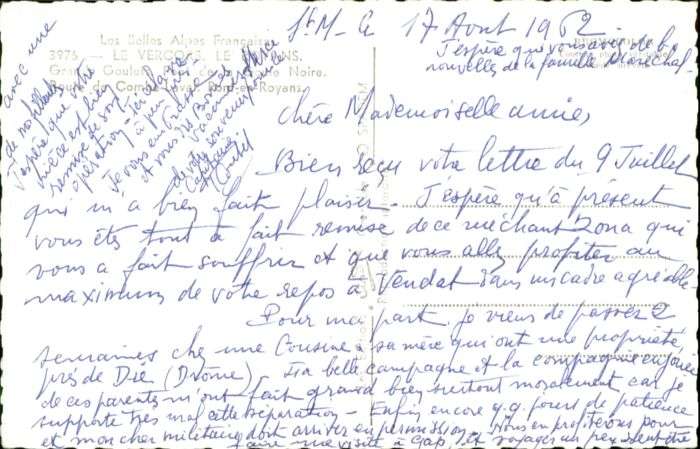 St M - G 17 Aout 1962
J'espère que vous avez de b.
nouvelles de la famille Maréchal.
Les Belles Alpes Françaises
3975 - LE VERCORS, LE
Grands Goulets
Combe Laval, Pont-en-Royans.
Chère Mademoiselle amie,
Bien reçu votre lettre du 9 Juillet
qui m'a bien fait plaisir - J'espère qu'à présent
vous êtes tout à fait remise de ce méchant zona qui
vous a fait souffrir et que vous allez profiter au
maximum de votre repos à Vendat dans un cadre agréable.
Pour ma part je viens de passer 2
semaines chez une Cousine & sa mère qui ont une propriété,
près de Die (Drôme) - La belle campagne et la compagnie enjouée
de ces parents m'ont fait grand bien surtout moralement car je
supporte très mal cette séparation - Enfin encore q.q. jours de patience
et mon cher militaire doit arriver en permission. Nous en profiterons pour
faire une visite à Gap, et voyager un peu peut-être
avec une
de nos
J'espère que votre
nièce est bien
remise de son
opération -
Je vous embrasse
et vous dis Bonnes
Vacances